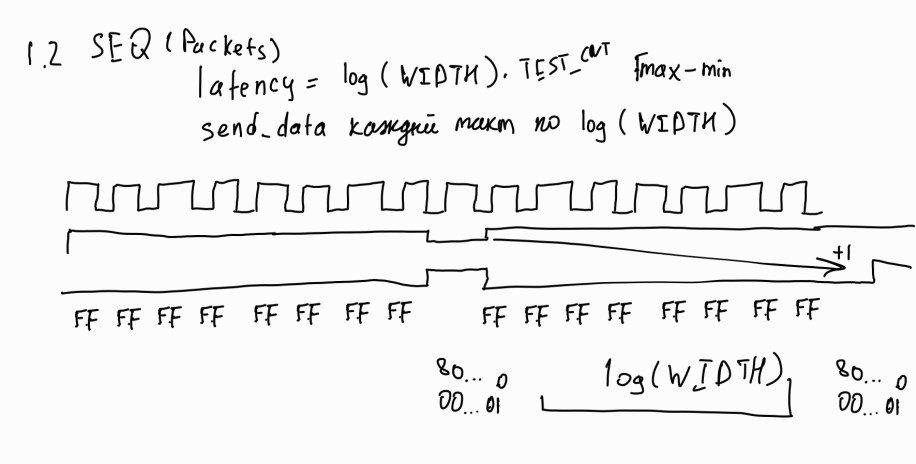 1.2 SEQ (Packets)
latency = log (WIDTH) · TEST_CNT Fmax-min
send_data каждый такт по log (WIDTH)
+1
FF FF FF FF FF FF FF FF FF FF FF FF FF FF FF FF
80... 0 log(WIDTH) 80... 0
00...01 00...01